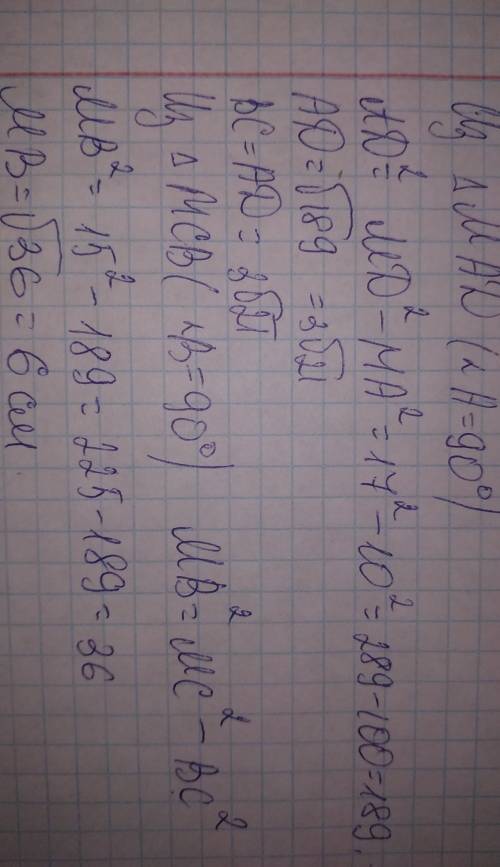 Из △ МАD (∠A=90°)
AD² = MD² - MA² = 17² - 10² = 289-100=189.
AD=√189 = 3√21
BC = AD = 3√21
Из △ МСВ (∠B=90°) MB² = MC² - BC²
MB² = 15² - 189 = 225-189=36
MB=√36 = 6 см.